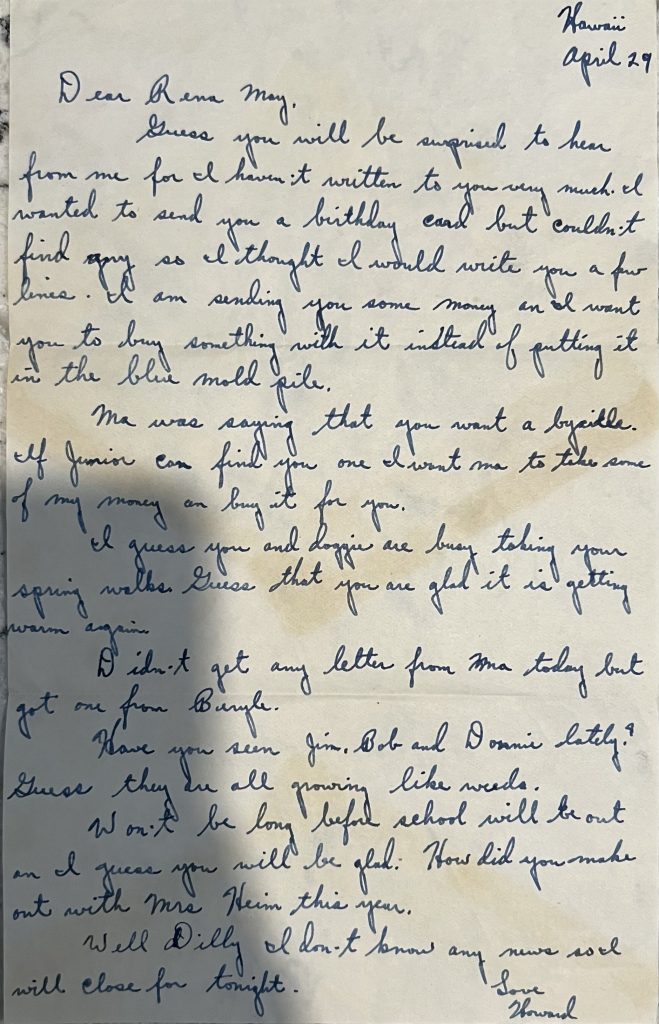 Hawaii
April 29
Dear Rena May,
Guess you will be surprised to hear
from me for I haven't written to you very much. I
wanted to send you a birthday card but couldn't
find any so I thought I would write you a few
lines. I am sending you some money an I want
you to buy something with it instead of putting it
in the blue mold pile.
Ma was saying that you want a
If Junior can find you one I want ma to take some
of my money an buy it for you.
I guess you and doggie are busy taking your
spring walks. Guess that you are glad it is getting
warm again.
Didn't get any letter from Ma today but
got one from Beryle.
Have you seen Jim, Bob and Donnie lately?
Guess they are all growing like weeds.
Won't be long before school will be out
an I guess you will be glad. How did you make
out with Mrs Heim this year.
Well Dilly I don't know any news so I
will close for tonight.
Love
Howard